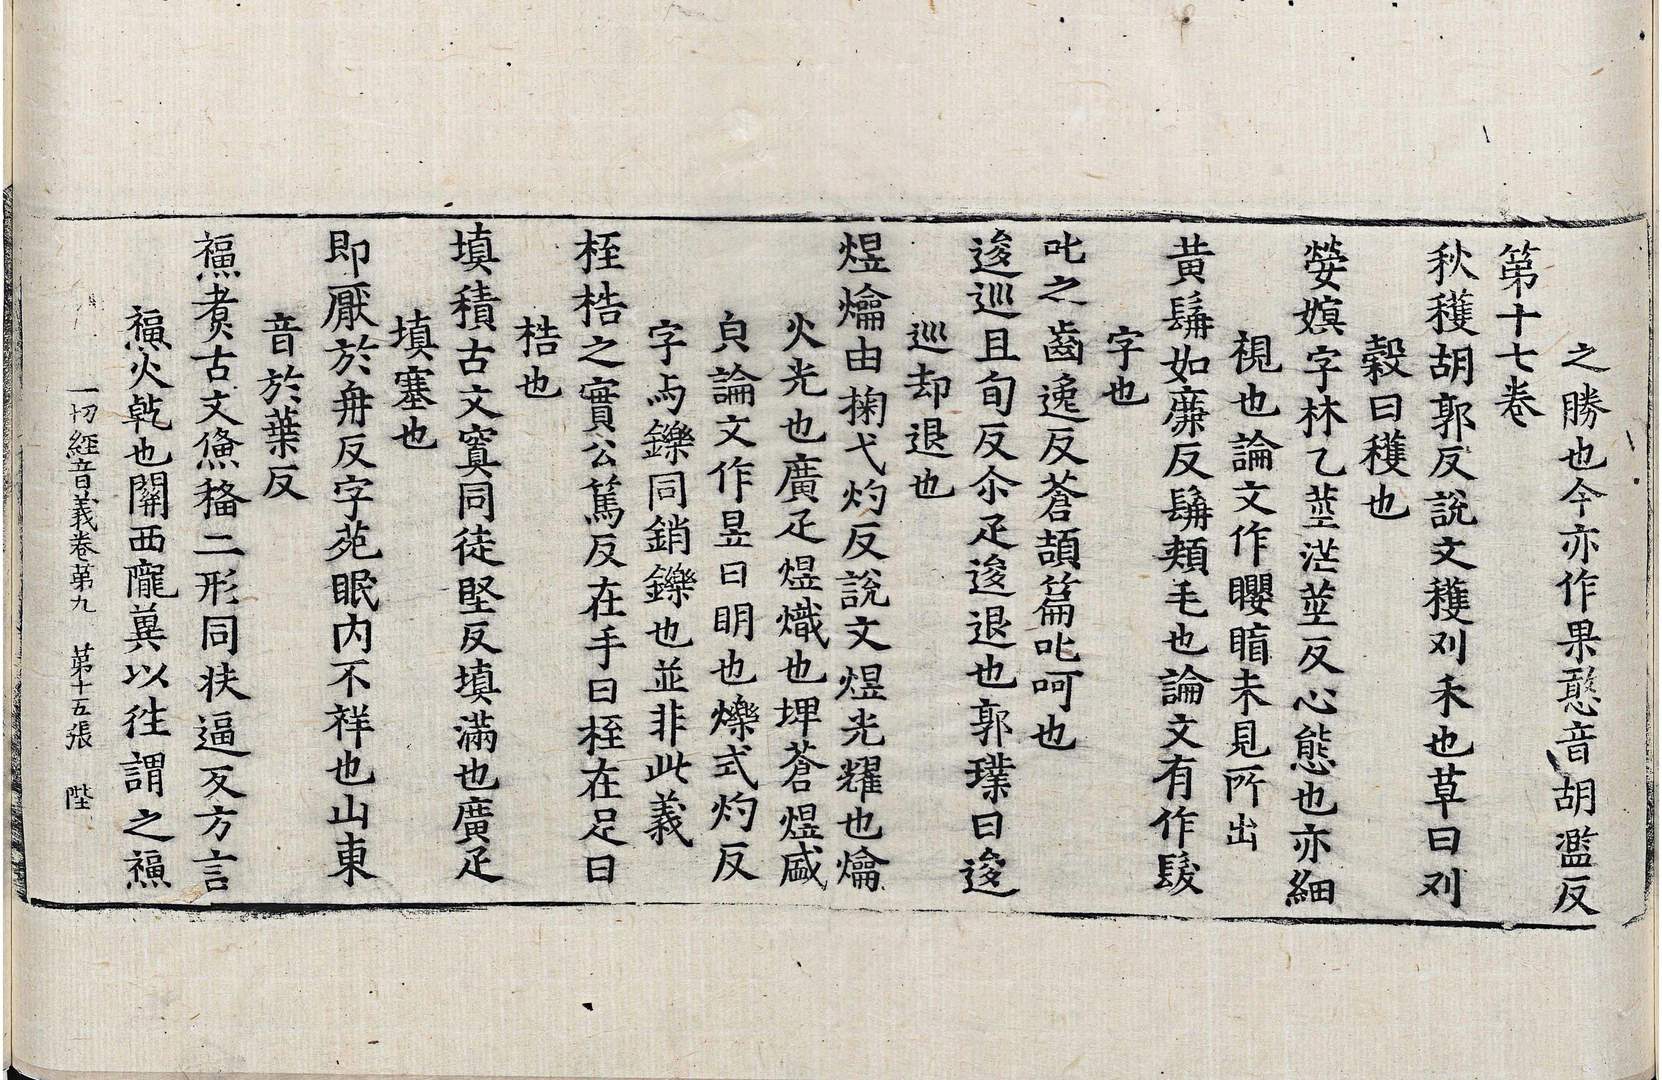 之勝也今亦作果憨音胡濫反
第十七卷
秋穫胡郭反說文穫刈禾也草曰刈
穀曰穫也
嫈嫇字林乙莖茫莖反心態也亦細
視也論文作矎䀴未見所出
黃髯如廉反髯頰毛也論文有作髮
字也
叱之齒逸反蒼頡篇叱呵也
逡巡且旬反尒疋逡退也郭璞曰逡
巡却退也
煜爚由掬弋灼反說文煜光耀也爚
火光也廣疋煜熾也埤蒼煜盛
皃論文作昱日明也爍式灼反
字与鑠同銷鑠也並非此義
桎梏之實公篤反在手曰桎在足曰
梏也
填積古文窴同徒堅反填滿也廣疋
填塞也
即厭於冉反字苑眠內不祥也山東
音於葉反
𤎅煑古文𤑔𥻆二形同扶逼反方言
𤎅火乾也關西隴冀以往謂之𤎅
一切經音義卷第九　第十五張　陛